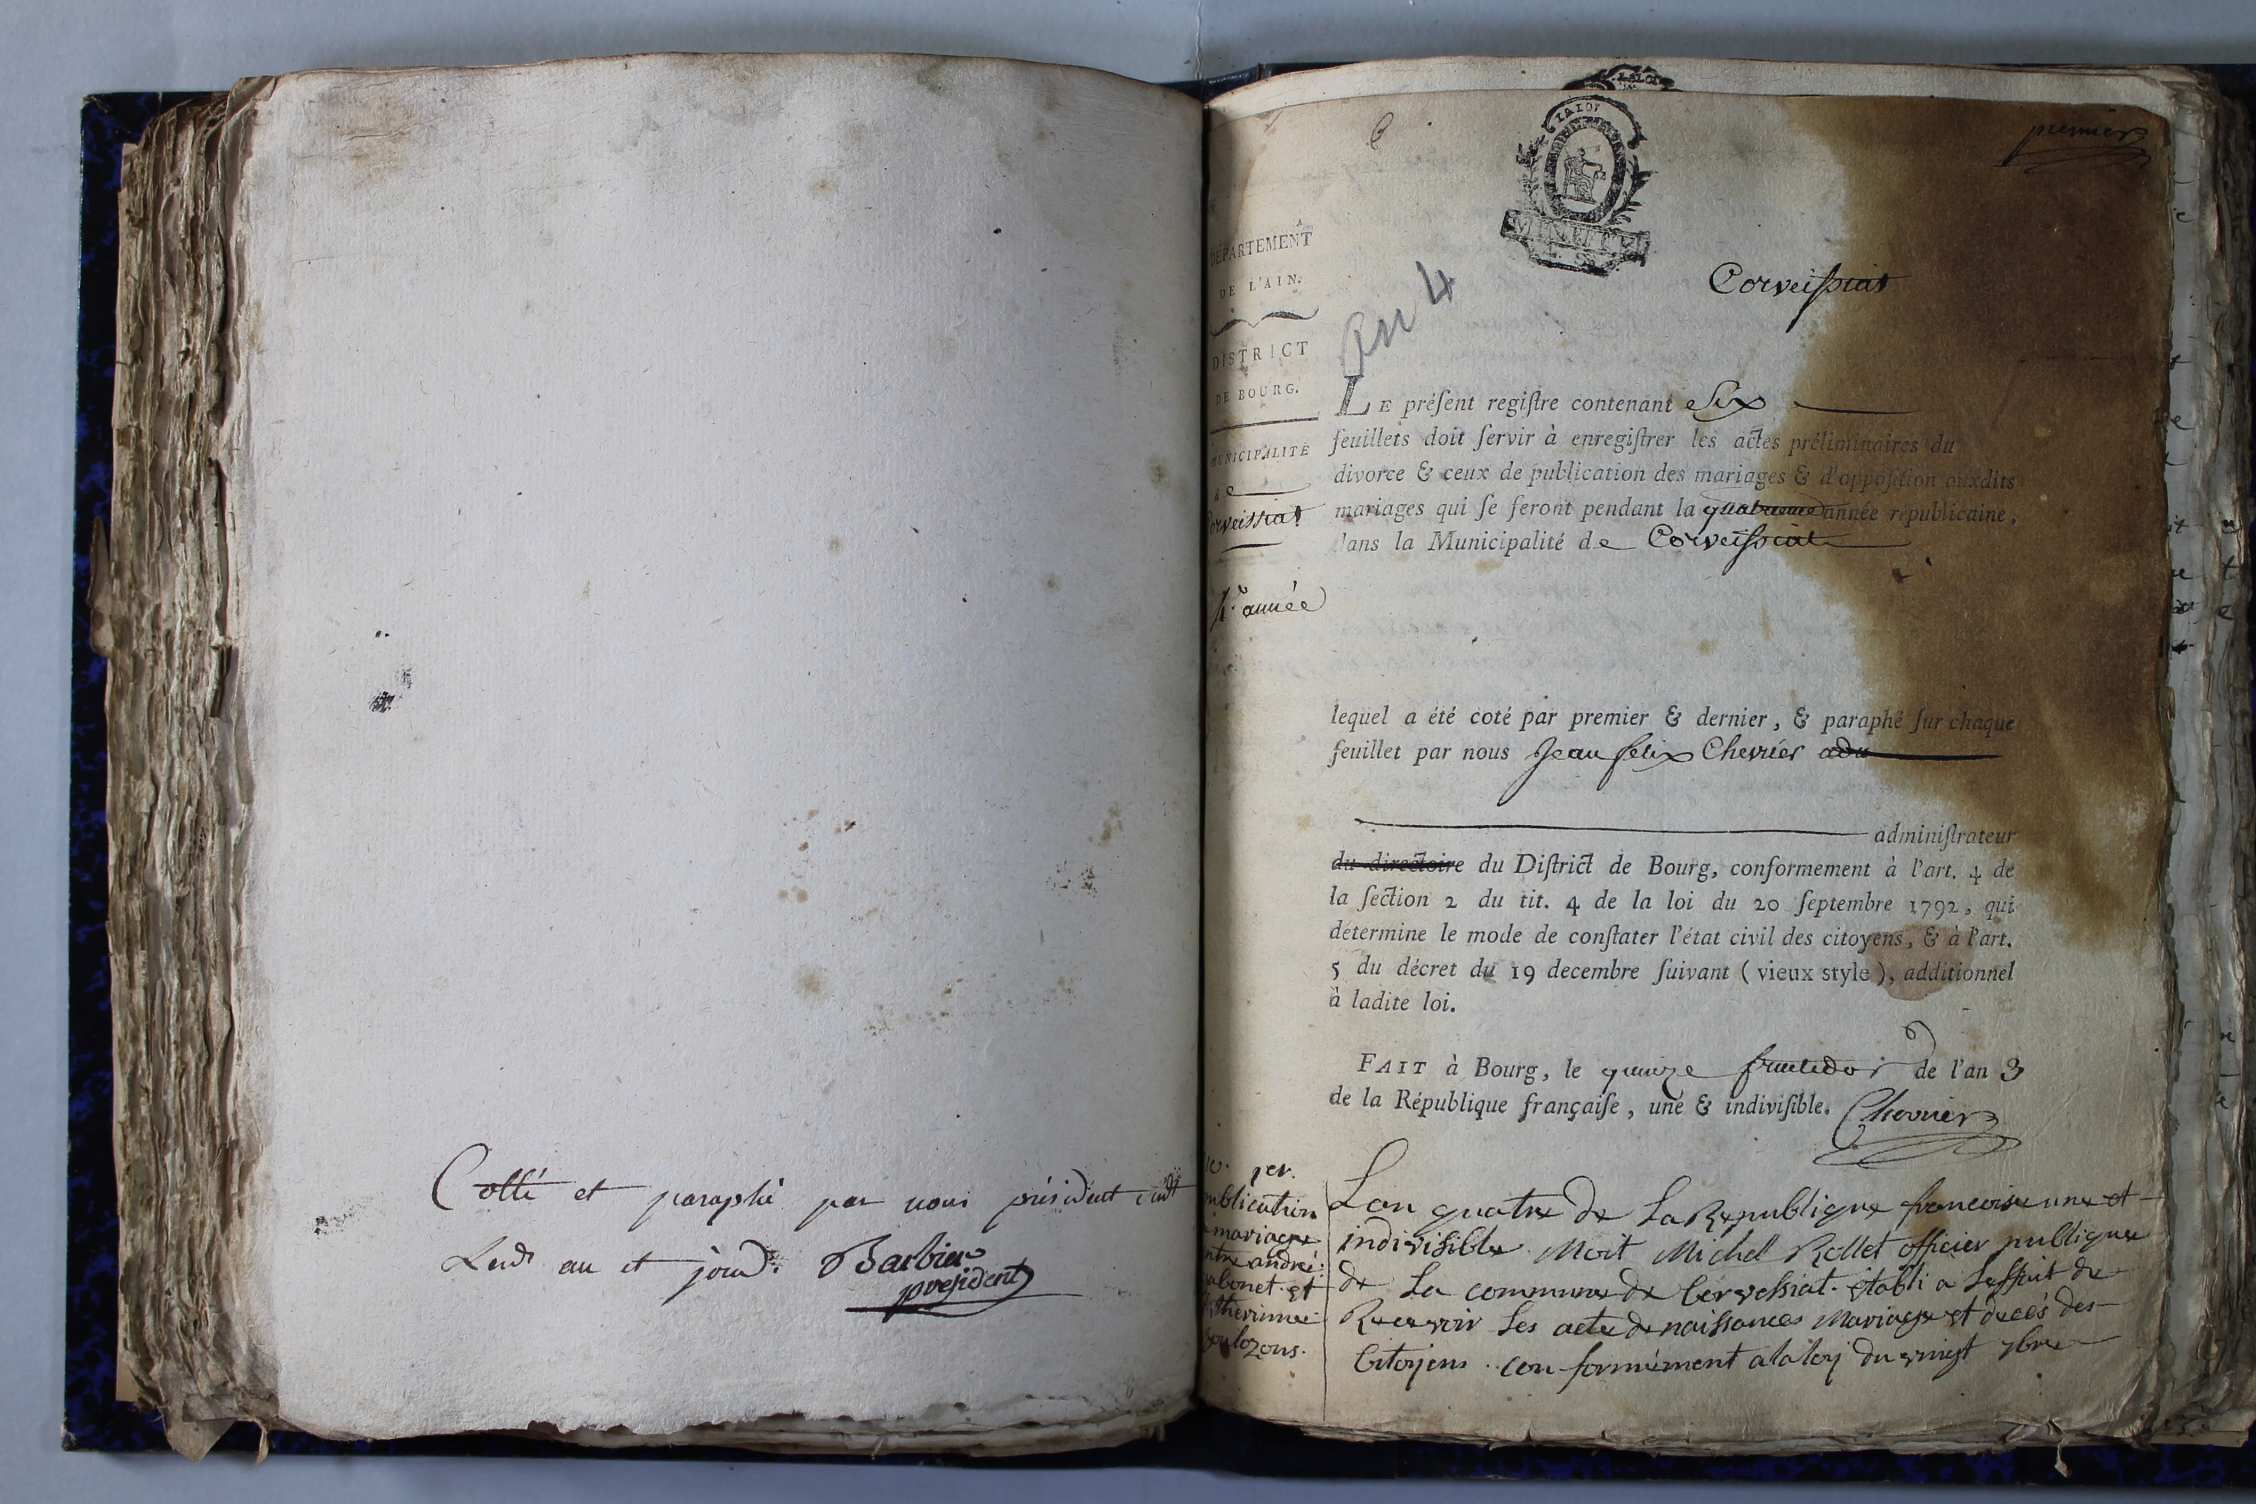 Cotté et paraphé par nous président aud.t
Lesd. an et jourd. Barbier
président
premier
LA LOI
MINUTE
An 4
Corveissiat
DÉPARTEMENT
DE L'AIN.
DISTRICT
DE BOURG.
MUNICIPALITÉ
de
Corveissiat
4.e année
LE préſent regiſtre contenant Six
feuillets doit ſervir à enregiſtrer les actes préliminaires du
divorce & ceux de publication des mariages & d'oppoſition auxdits
mariages qui ſe feront pendant la quatrieme année républicaine,
dans la Municipalité de Corveissiat
lequel a été coté par premier & dernier, & paraphé ſur chaque
feuillet par nous Jean felix Chevrier adm
adminiſtrateur
du directoire du Diſtrict de Bourg, conformement à l'art. 4 de
la ſection 2 du tit. 4 de la loi du 20 ſeptembre 1792, qui
détermine le mode de conſtater l'état civil des citoyens, & à l'art.
5 du décret du 19 decembre ſuivant (vieux style), additionnel
à ladite loi.
FAIT à Bourg, le quinze fructidor de l'an 3
de la République françaiſe, une & indiviſible. Chevrier
1er.
publication
mariage
entre andré
et
Catherinne
Lan quatre de La Republique francoise une et
indivisible. Moit Michel Rollet officier publique
de La commune de Cervessiat. établi a Leffait de
Recevoir Les acte de naissances Mariage et decés des
Citoyens. conformément a la loy du vingt 7bre